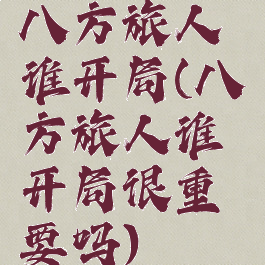 八方旅人
谁开局(八
方旅人谁
开局很重
要吗)